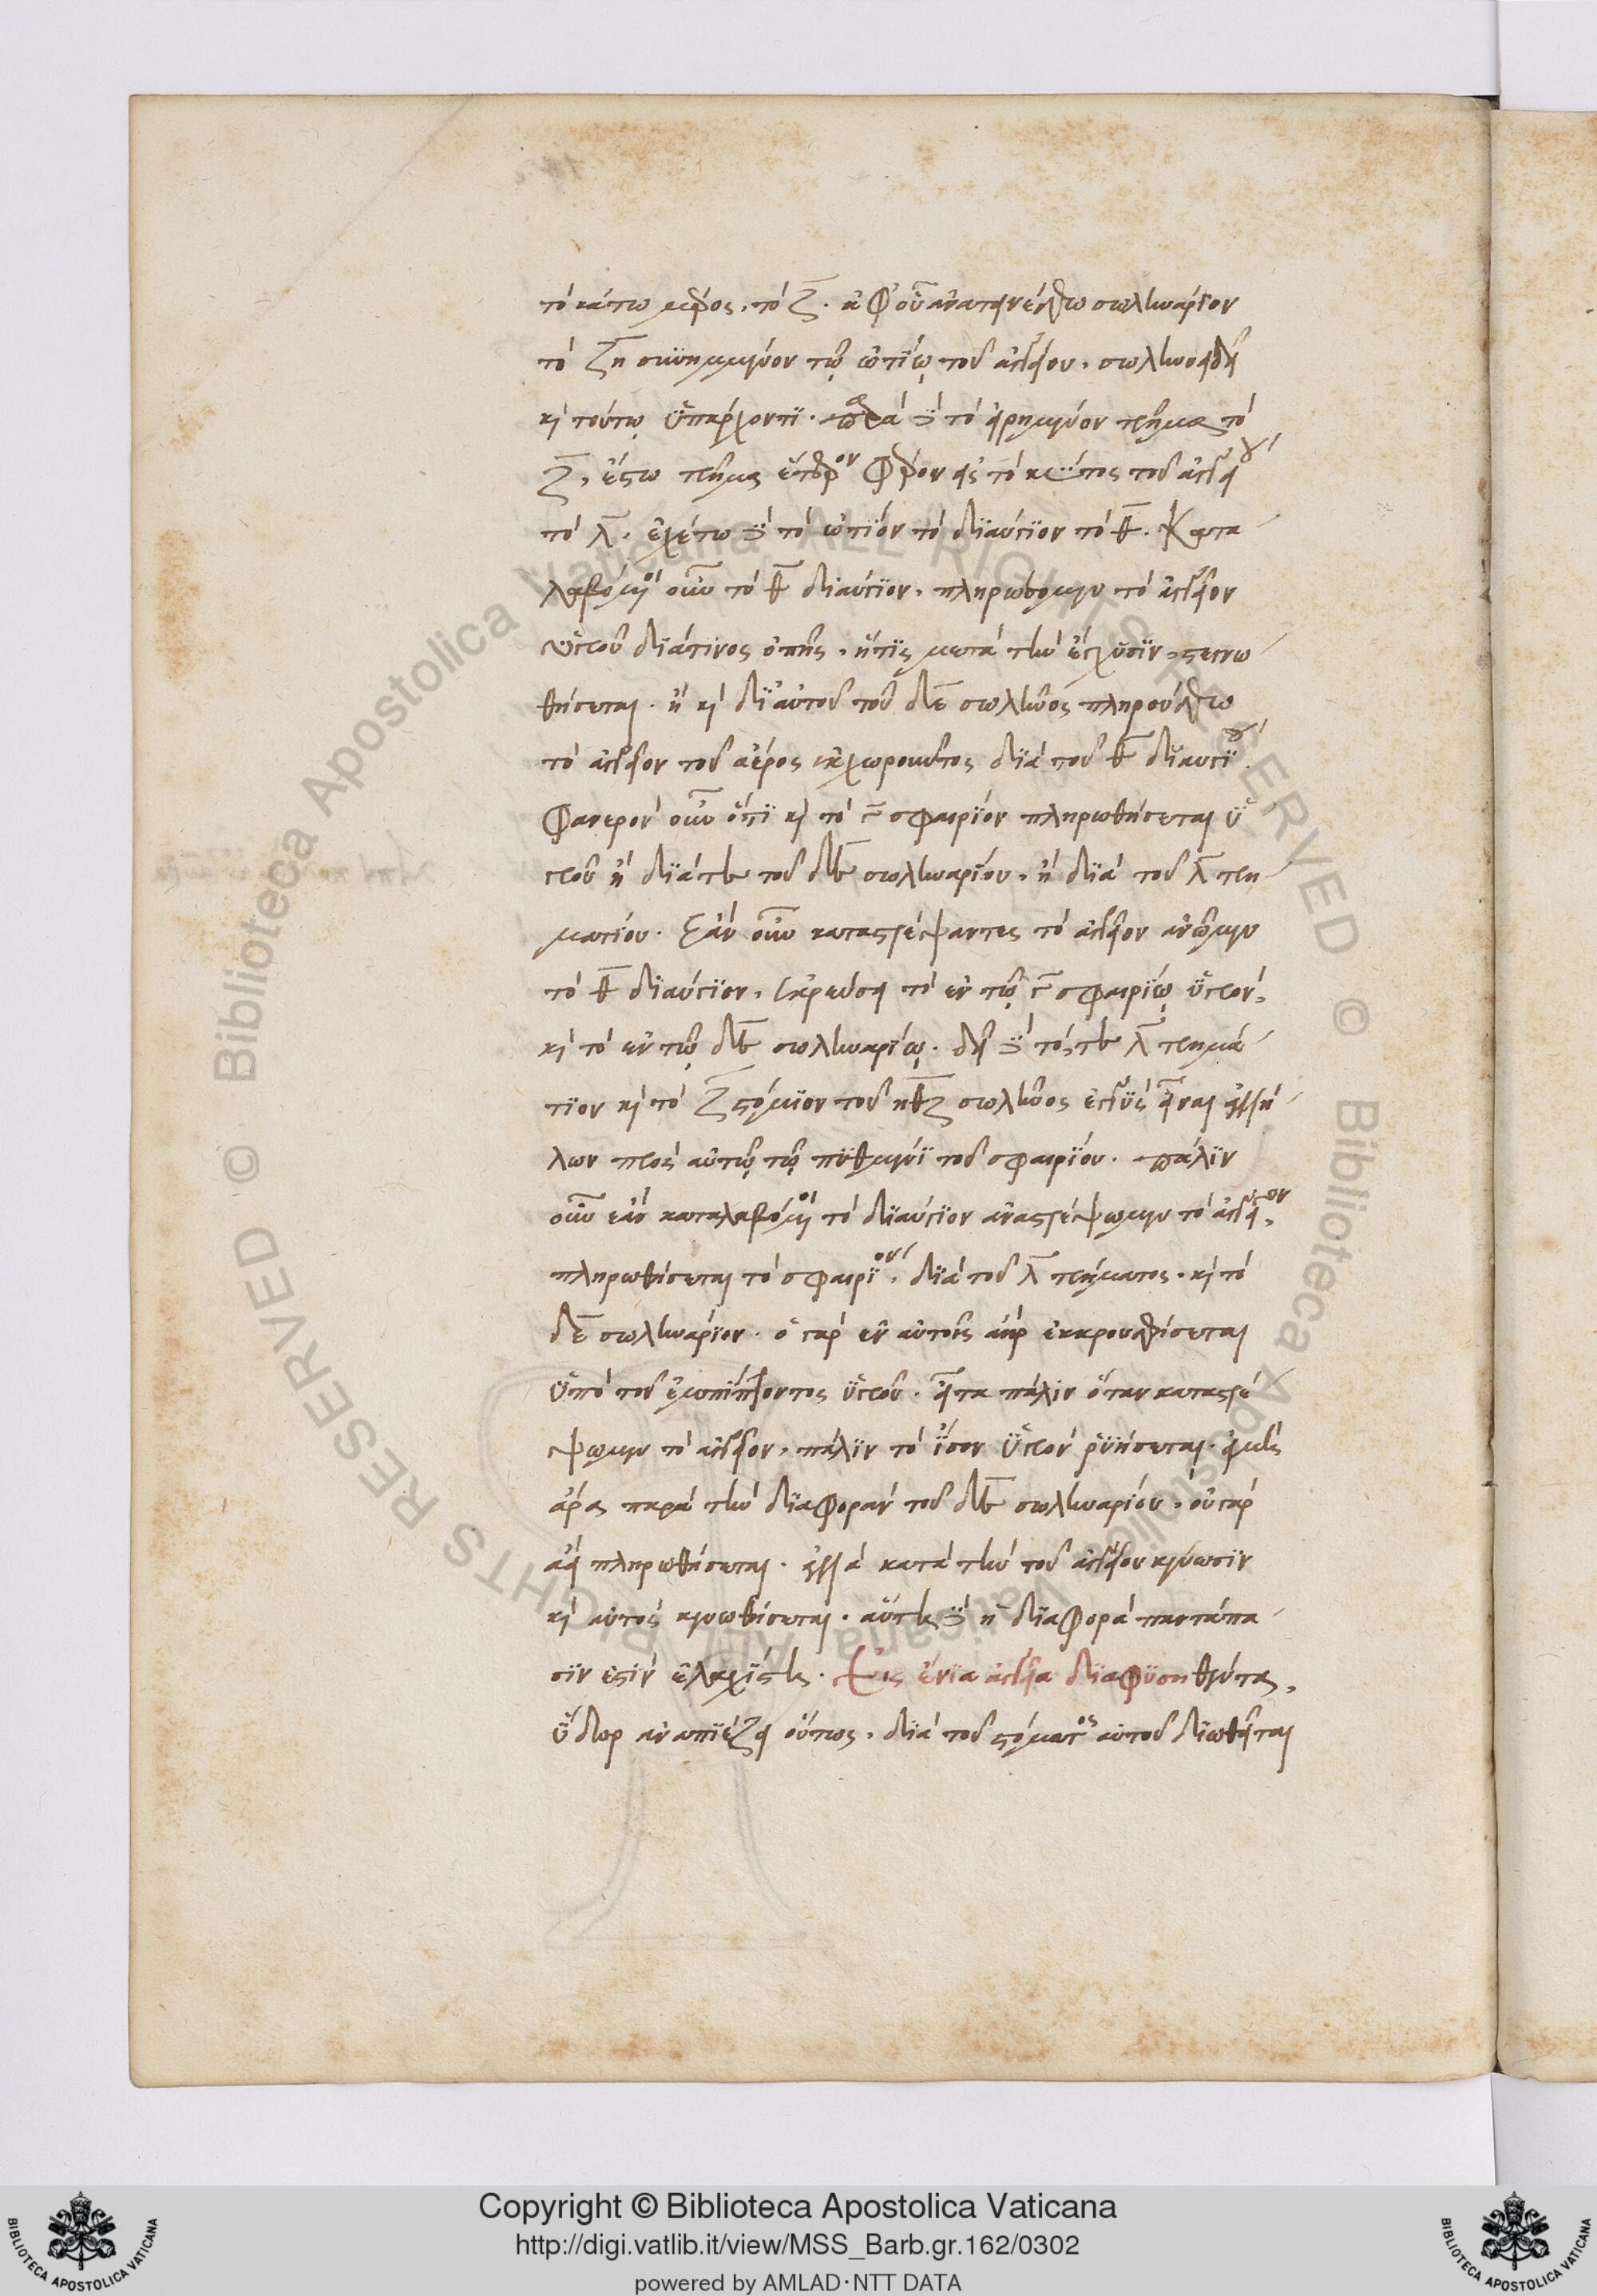 τὸ κάτω μέρος, τὸ ζ. ἀφ' οὗ ἀνατεινέσθω σωληνάριον
τὸ ζη συνημμένον τῷ ὠτίῳ τοῦ ἀγγείου, σωληνοειδεῖ
καὶ τούτῳ ὑπάρχοντι. παρὰ δὲ τὸ εἰρημένον τρῆμα τὸ
ζ, ἔστω τρῆμα ἕτερον φέρον εἰς τὸ κύτος τοῦ ἀγγείου
τὸ λ. ἐχέτω δὲ τὸ ὠτίον τὸ διαύγιον τὸ θ. κατα
λαβόμενοι οὖν τὸ θ διαύγιον, πληρώσομεν τὸ ἀγγεῖον
ὑγροῦ διά τινος ὀπῆς, ἥτις μετὰ τὴν ἔγχυσιν, στεγνω
θήσεται. ἢ καὶ δι' αὐτοῦ τοῦ δε σωλῆνος πληρούσθω
τὸ ἀγγεῖον τοῦ ἀέρος ἐκχωροῦντος διὰ τοῦ θ διαυγίου.
φανερὸν οὖν ὅτι καὶ τὸ γ σφαιρίον πληρωθήσεται ὑ
γροῦ ἢ διά τε τοῦ δε σωληναρίου, ἢ διὰ τοῦ λ τρη
ματίου. ἐὰν οὖν καταστρέψαντες τὸ ἀγγεῖον ἀνῶμεν
τὸ θ διαύγιον, ἐκρεύσει τὸ ἐν τῷ γ σφαιρίῳ ὑγρόν,
καὶ τὸ ἐν τῷ δε σωληναρίῳ. δεῖ δὲ τό, τε λ τρημά
τιον καὶ τὸ ζ στόμιον τοῦ ηθζ σωλῆνος ἐγγὺς εἶναι ἀλλή
λων πρὸς αὐτῷ τῷ πυθμένι τοῦ σφαιρίου. πάλιν
οὖν ἐὰν καταλαβόμενοι τὸ διαύγιον ἀναστρέψωμεν τὸ ἀγγεῖον,
πληρωθήσεται τὸ σφαιρίον, διὰ τοῦ λ τρήματος, καὶ τὸ
δε σωληνάριον. ὁ γὰρ ἐν αὐτοῖς ἀὴρ ἐκκρουσθήσεται
ὑπὸ τοῦ ἐμπίπτοντος ὑγροῦ. εἶτα πάλιν ὅταν καταστρέ
ψωμεν τὸ ἀγγεῖον, πάλιν τὸ ἴσον ὑγρὸν ῥυήσεται. εἰ μὴ
ἄρα παρὰ τὴν διαφορὰν τοῦ δε σωληναρίου, οὐ γὰρ
ἀεὶ πληρωθήσεται. ἀλλὰ κατὰ τὴν τοῦ ἀγγείου κένωσιν
καὶ αὐτὸς κενωθήσεται. αὕτη δὲ ἡ διαφορὰ παντάπα
σιν ἐστὶν ἐλαχίστη. Εἰς ἔνια ἀγγεῖα διαφυσηθέντα,
ὕδωρ ἀναπιέζει οὕτως, διὰ τοῦ στόματος αὐτοῦ διωθεῖται
Copyright © Biblioteca Apostolica Vaticana
http://digi.vatlib.it/view/MSS_Barb.gr.162/0302
powered by AMLAD·NTT DATA